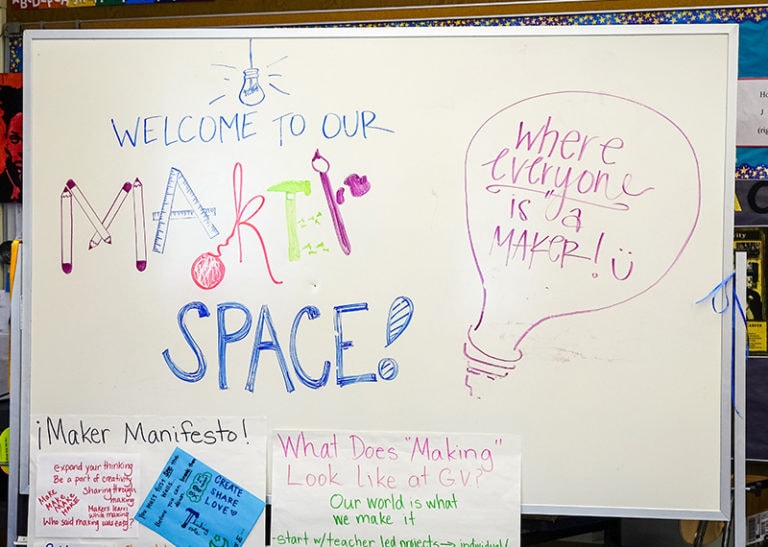 WELCOME TO OUR
MAKER
SPACE!
where
everyone
is a
MAKER!
¡Maker Manifesto!
expand your thinking
Be a part of creativity
Make
MAKE
MAKE
MAKE
Sharing through
making
Makers learn
while making
Who said making was easy?
CREATE
SHARE
LOVE
What Does "Making"
Look like at GV?
Our world is what
we make it
-start w/teacher led projects→ individual/